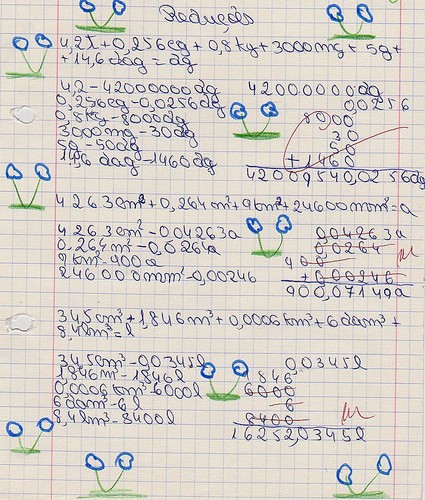 Reduções
4,2t+0,256cg+0,8kg+3000mg+5g+
+14,6dag=dg
4,2-42000000dg
0,256cg-0,0256dg
0,8kg-8000dg
3000mg-30dg
5g-50dg
14,6 dag-1460dg
42000000dg
0,0256
8000
30
50
+1460
42009540,0256dg
4263cm²+0,264m²+9km²+24600mm²=a
4263cm²-0,04263a
0,264m²-0,0264a
9km²-900a
246000mm²-0,00246
0,04263a
0,0264
900
+0,00246
900,07149a
34,5cm³+1,846m³+0,0006km³+6dam³+
8,4lm³=l
34,5cm³-0,0345l
1,846m³-1846l
0,0006km³-6000l
6dam³-6l
8,4lm³-8400l
0,0345l
1846
6000
6
8400
16252,0345l